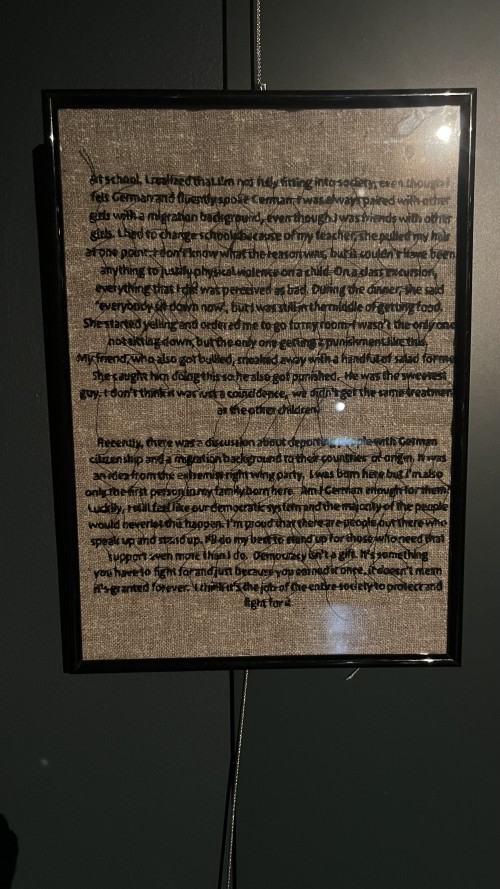 At school, I realized that I'm not fully fitting into society, even though I
felt German and fluently spoke German. I was always paired with other
girls with a migration background, even though I was friends with other
girls. I had to change schools because of my teacher, she pulled my hair
at one point. I don't know what the reason was, but it couldn't have been
anything to justify physical violence on a child. On a class excursion,
everything that I did was perceived as bad. During the dinner, she said
'everybody sit down now', but I was still in the middle of getting food.
She started yelling and ordered me to go to my room. I wasn't the only one
not sitting down, but the only one getting a punishment like this.
My friend, who also got bullied, sneaked away with a handful of salad for me.
She caught him doing this so he also got punished. He was the sweetest
guy. I don't think it was just a coincidence, we didn't get the same treatment
as the other children.
Recently, there was a discussion about deporting people with German
citizenship and a migration background to their countries of origin. It was
an idea from the extremist right wing party. I was born here but I'm also
only the first person in my family born here. Am I German enough for them?
Luckily, I still feel like our democratic system and the majority of the people
would never let this happen. I'm proud that there are people out there who
speak up and stand up. I'll do my best to stand up for those who need that
support even more than I do. Democracy isn't a gift. It's something
you have to fight for and just because you earned it once, it doesn't mean
it's granted forever. I think it's the job of the entire society to protect and
fight for it.